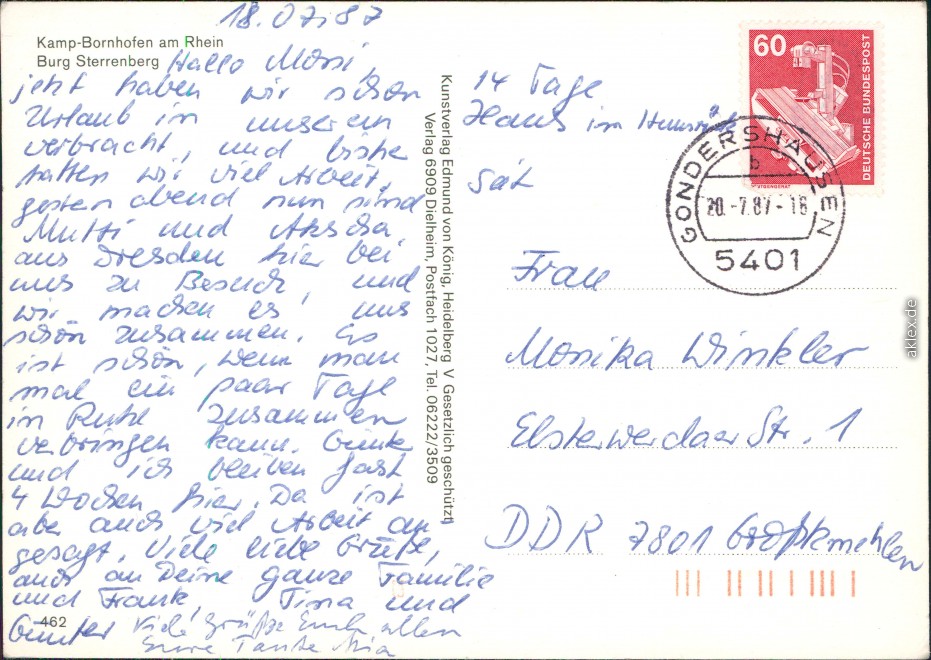 18.07.87
Kamp-Bornhofen am Rhein
Burg Sterrenberg
Hallo Moni,
jetzt haben wir schon
Urlaub in unserem
verbracht, und
hatten wir viel Arbeit,
gestern abend nun sind
Mutti und
aus Dresden hier bei
uns zu Besuch, und
wir machen es uns
schön zusammen. Es
ist schön, wenn man
mal ein paar Tage
in Ruhe zusammen
verbringen kann.
und ich bleiben fast
4 Wochen hier. Da ist
aber auch viel Arbeit an
gesagt. Viele liebe Grüße,
auch an Deine ganze Familie
und Frank, Tina und
Günter
Viele Grüße Euch allen
Eure Tante Mia
462
Kunstverlag Edmund von König, Heidelberg V Gesetzlich geschützt
Verlag 6909 Dielheim, Postfach 1027, Tel. 06222/3509
14 Tage
Haus im Hunsrück
60
DEUTSCHE BUNDESPOST
GONDERSHAUSEN
b
20.-7.87-16
5401
Frau
Monika Winkler
Elsterwerdaer Str. 1
DDR 7801 Großkmehlen
aklex.de